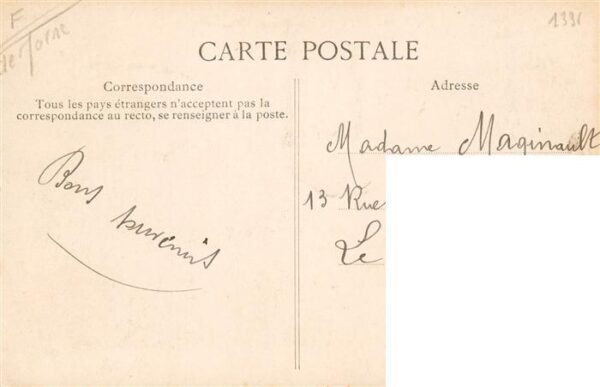 F
1331
CARTE POSTALE
Correspondance
Tous les pays étrangers n'acceptent pas la
correspondance au recto, se renseigner à la poste.
Bons
souvenirs
Adresse
Madame Maginault
13 Rue
Le